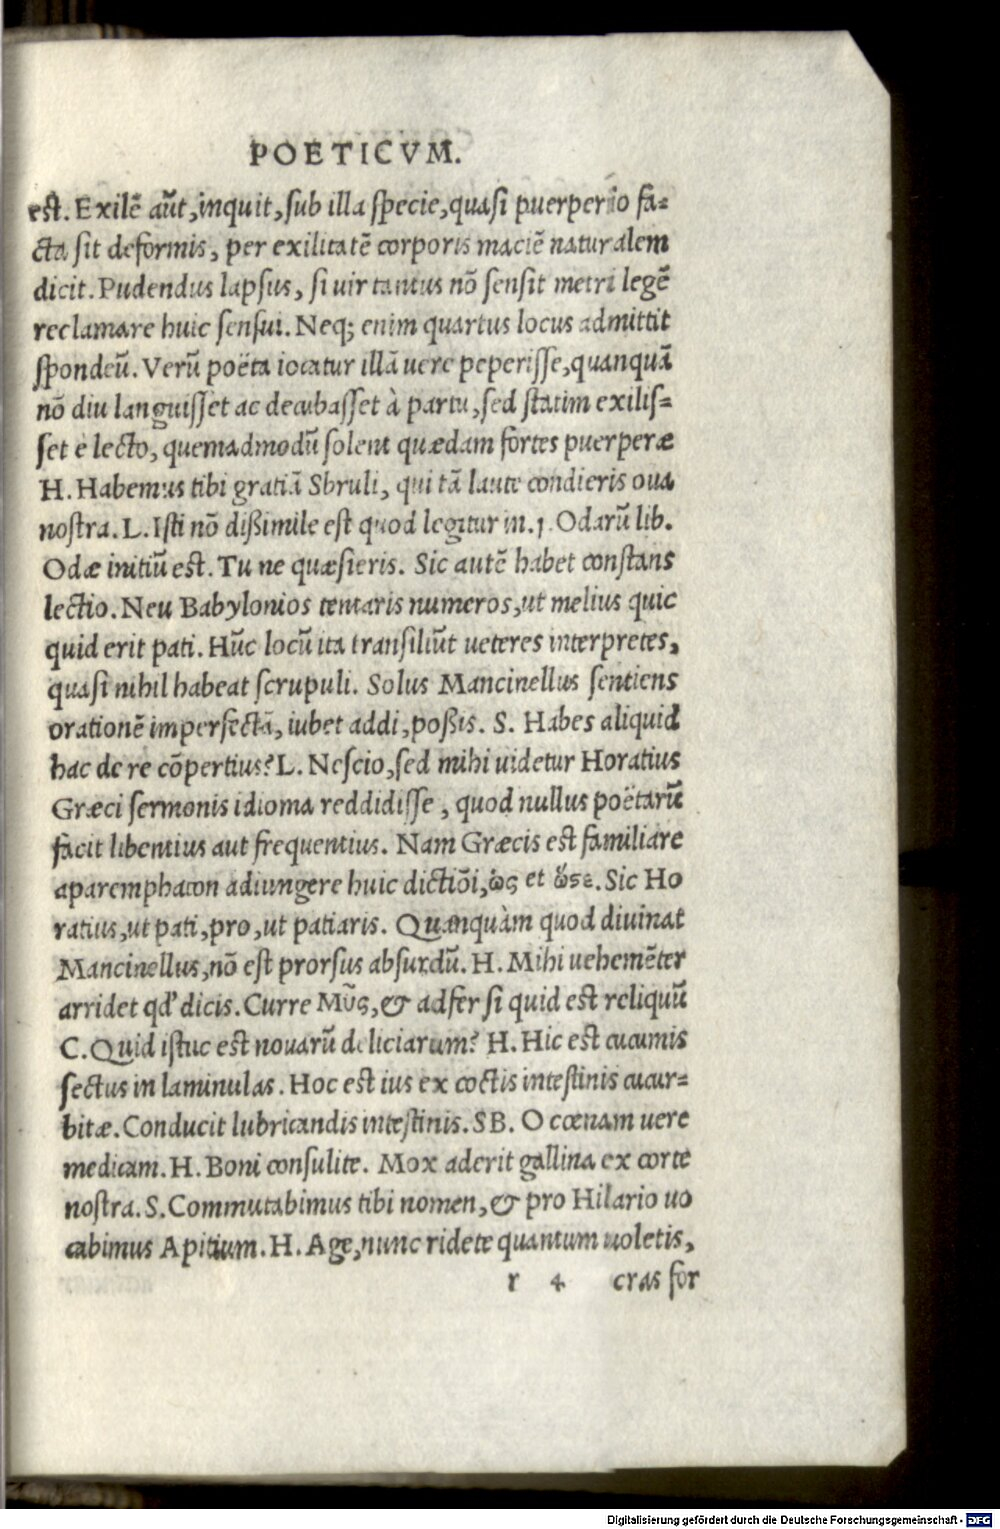 POETICVM.
est. Exilē aūt, inquit, sub illa specie, quasi puerperio fa-
cta sit deformis, per exilitatē corporis maciē naturalem
dicit. Pudendus lapsus, si uir tantus nō sensit metri legē
reclamare huic sensui. Neq; enim quartus locus admittit
spondeū. Verū poëta iocatur illā uere peperisse, quanquā
nō diu languisset ac decubasset à partu, sed statim exilis-
set è lecto, quemadmodū solent quædam fortes puerperæ
H. Habemus tibi gratiā Sbruli, qui tā laute condieris oua
nostra. L. Isti nō dißimile est quod legitur in .1. Odarū lib.
Odæ initiū est. Tu ne quæsieris. Sic autē habet constans
lectio. Neu Babylonios tentaris numeros, ut melius quic
quid erit pati. Hūc locū ita transiliūt ueteres interpretes,
quasi nihil habeat scrupuli. Solus Mancinellus sentiens
orationē imperfectā, iubet addi, poßis. S. Habes aliquid
hac de re cōpertius? L. Nescio, sed mihi uidetur Horatius
Græci sermonis idioma reddidisse, quod nullus poëtarū
facit libentius aut frequentius. Nam Græcis est familiare
aparemphaton adiungere huic dictiōi, ὡς et ὥστε. Sic Ho
ratius, ut pati, pro, ut patiaris. Quanquàm quod diuinat
Mancinellus, nō est prorsus absurdū. H. Mihi uehemēter
arridet qd' dicis. Curre Mῦς, & adfer si quid est reliquū
C. Quid istuc est nouarū deliciarum? H. Hic est cucumis
sectus in laminulas. Hoc est ius ex coctis intestinis cucur-
bitæ. Conducit lubricandis intestinis. SB. O cœnam uere
medicam. H. Boni consulite. Mox aderit gallina ex corte
nostra. S. Commutabimus tibi nomen, & pro Hilario uo
cabimus Apitium. H. Age, nunc ridete quantum uoletis,
r 4 cras for
Digitalisierung gefördert durch die Deutsche Forschungsgemeinschaft - DFG